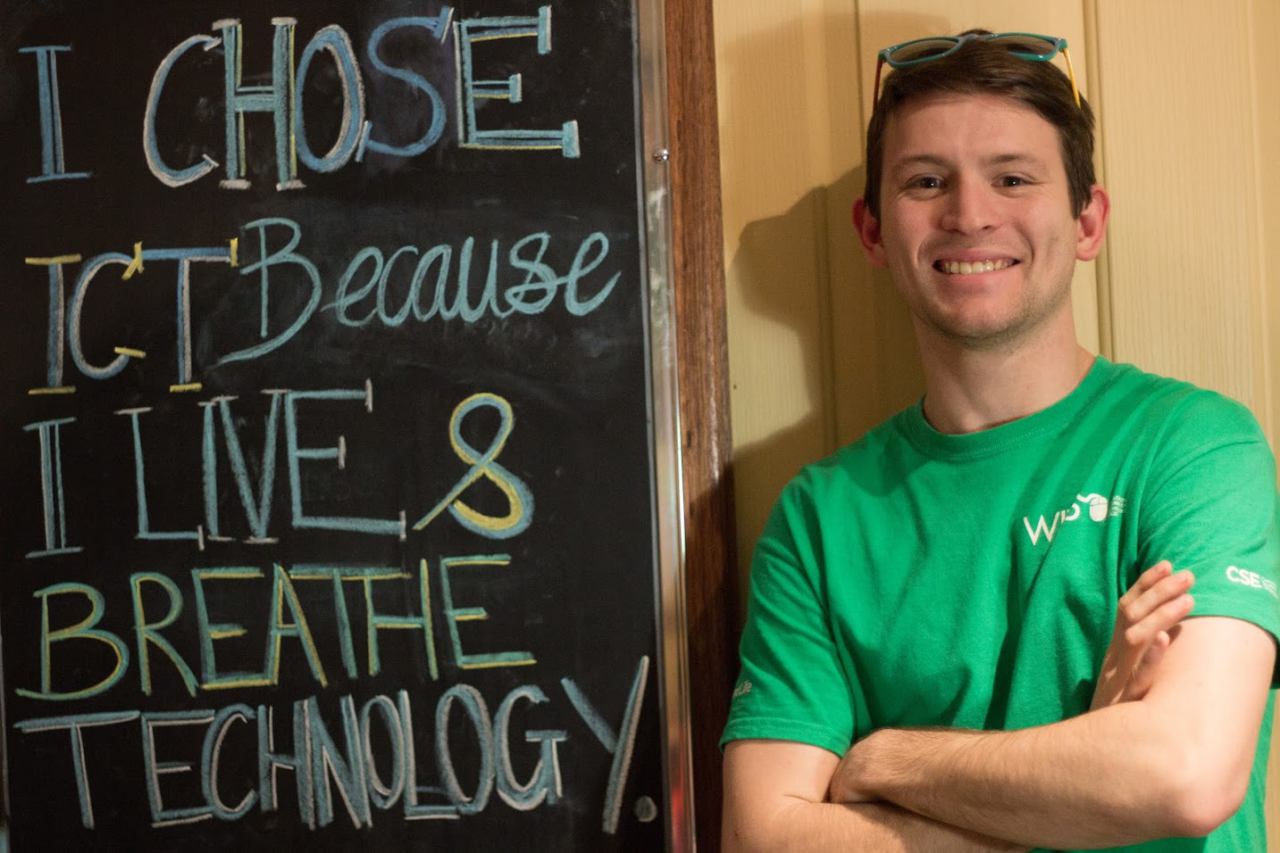 I CHOSE
ICT Because
I LIVE &
BREATHE
TECHNOLOGY.
CSE